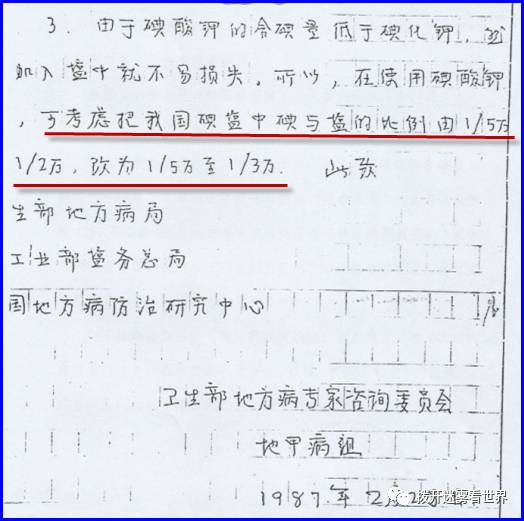 3. 由于碘酸钾的含碘量低于碘化钾，
加入盐中就不易损失，所以，在使用碘酸钾
，可考虑把我国碘盐中碘与盐的比例由1/5万
1/2万，改为1/5万至1/3万. 此致
生部地方病局
工业部盐务总局
国地方病防治研究中心
卫生部地方病专家咨询委员会
地甲病组
1987年2月2
拨开迷雾看世界